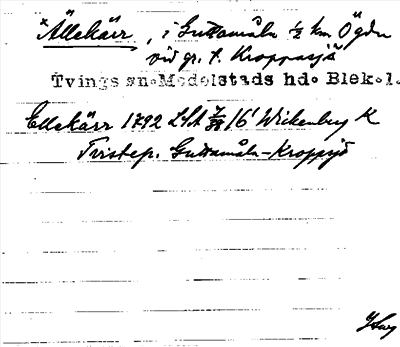 *Ällekärr, i Guttamåla ½ km Ögdn
vid gr. t. Kroppasjä
Tvings sn. Medelstads hd. Blek.l.
Ellekärr 1792 LSA 7/38 16' Wickenberg K
Tvistep. Guttamåla-Kroppsjö